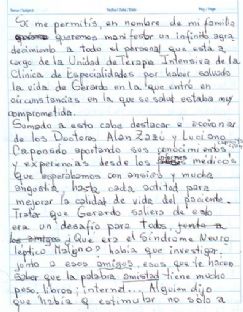 Si me permitís, en nombre de mi familia
queremos manifestar un infinito agra
decimiento a todo el personal que está a
cargo de la Unidad de Terapia Intensiva de la
Clínica de Especialidades por haber salvado
la vida de Gerardo en la que entró en
circunstancias en la que se salud estaba muy
comprometida.
Sumado a esto cabe destacar el
de los Doctores Alan Zazú y Luciano
Capando aportando sus conocimientos
y experiencias desde los médicos
que esperabamos con ansiedad y mucha
angustia, hasta cada actitud para
mejorar la calidad de vida del paciente.
Tratar que Gerardo saliera de esto
era un desafío para todos, junto a
los amigos ¿Que era el Síndrome Neuro
leptico Maligno? había que investigar,
junto a esos amigos, esos que te hacen
saber que la palabra amistad tiene mucho
peso, libros, internet... Alguien dijo
que había q estimular no solo a